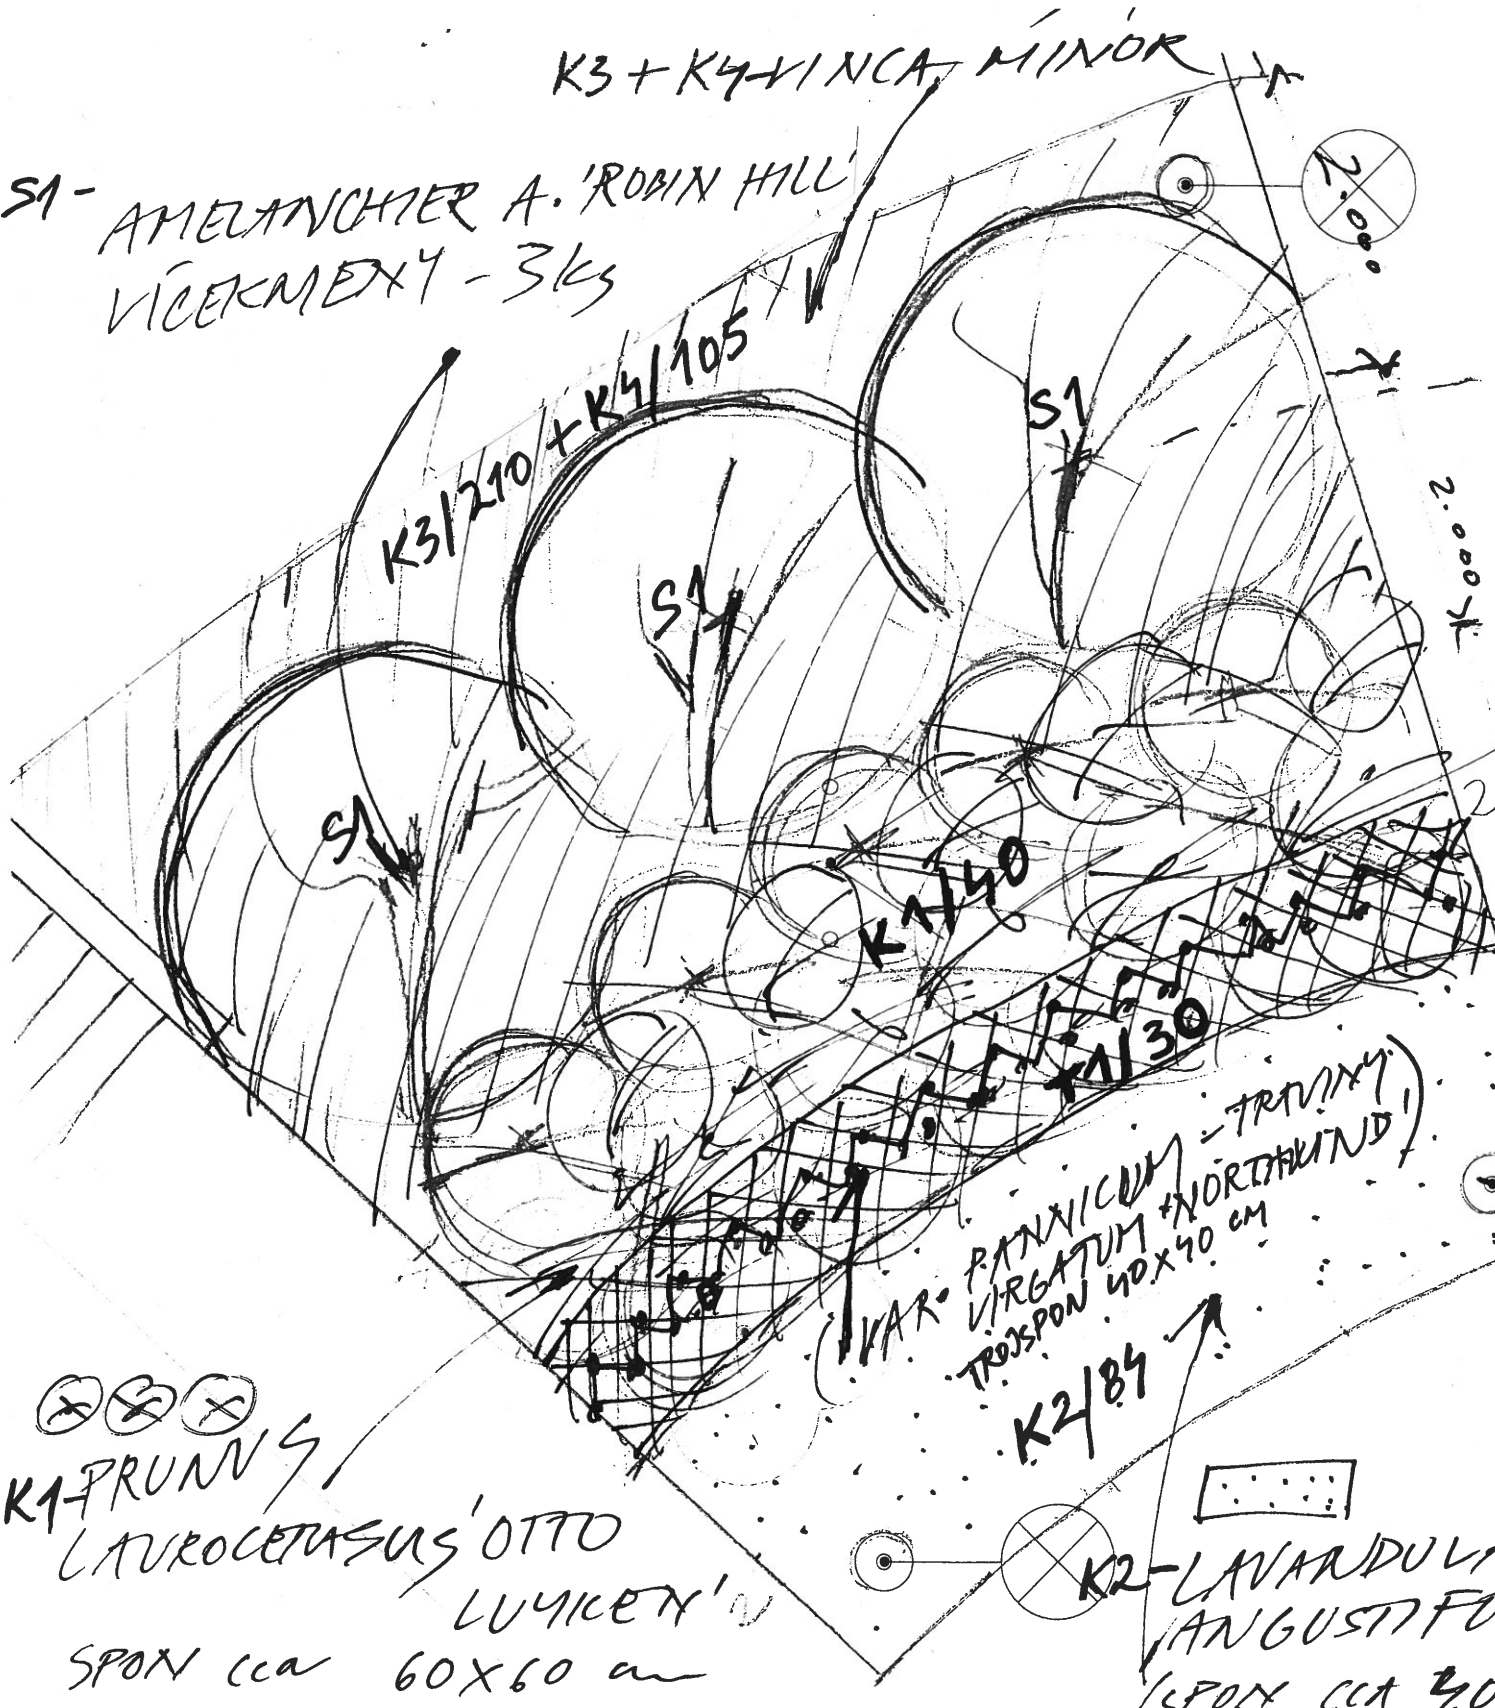 K3 + K4-VINCA MÍNOR
S1 -
AMELANCHIER A. 'ROBIN HILL'
VÍCEKMENY - 3ks
2.000
K3/210 + K4/105
S1
2.000
S1
S1
K1/40
T1/30
(VAR. PANNICUM - TRAVINY
VIRGATUM 'NORTHWIND')
TROJSPON 40X40 CM
K2/84
K1-PRUNUS
LAUROCERASUS 'OTTO
LUYKEN'
SPON cca 60X60 cm
K2-LAVANDULA
ANGUSTIFO
(SPON CCA